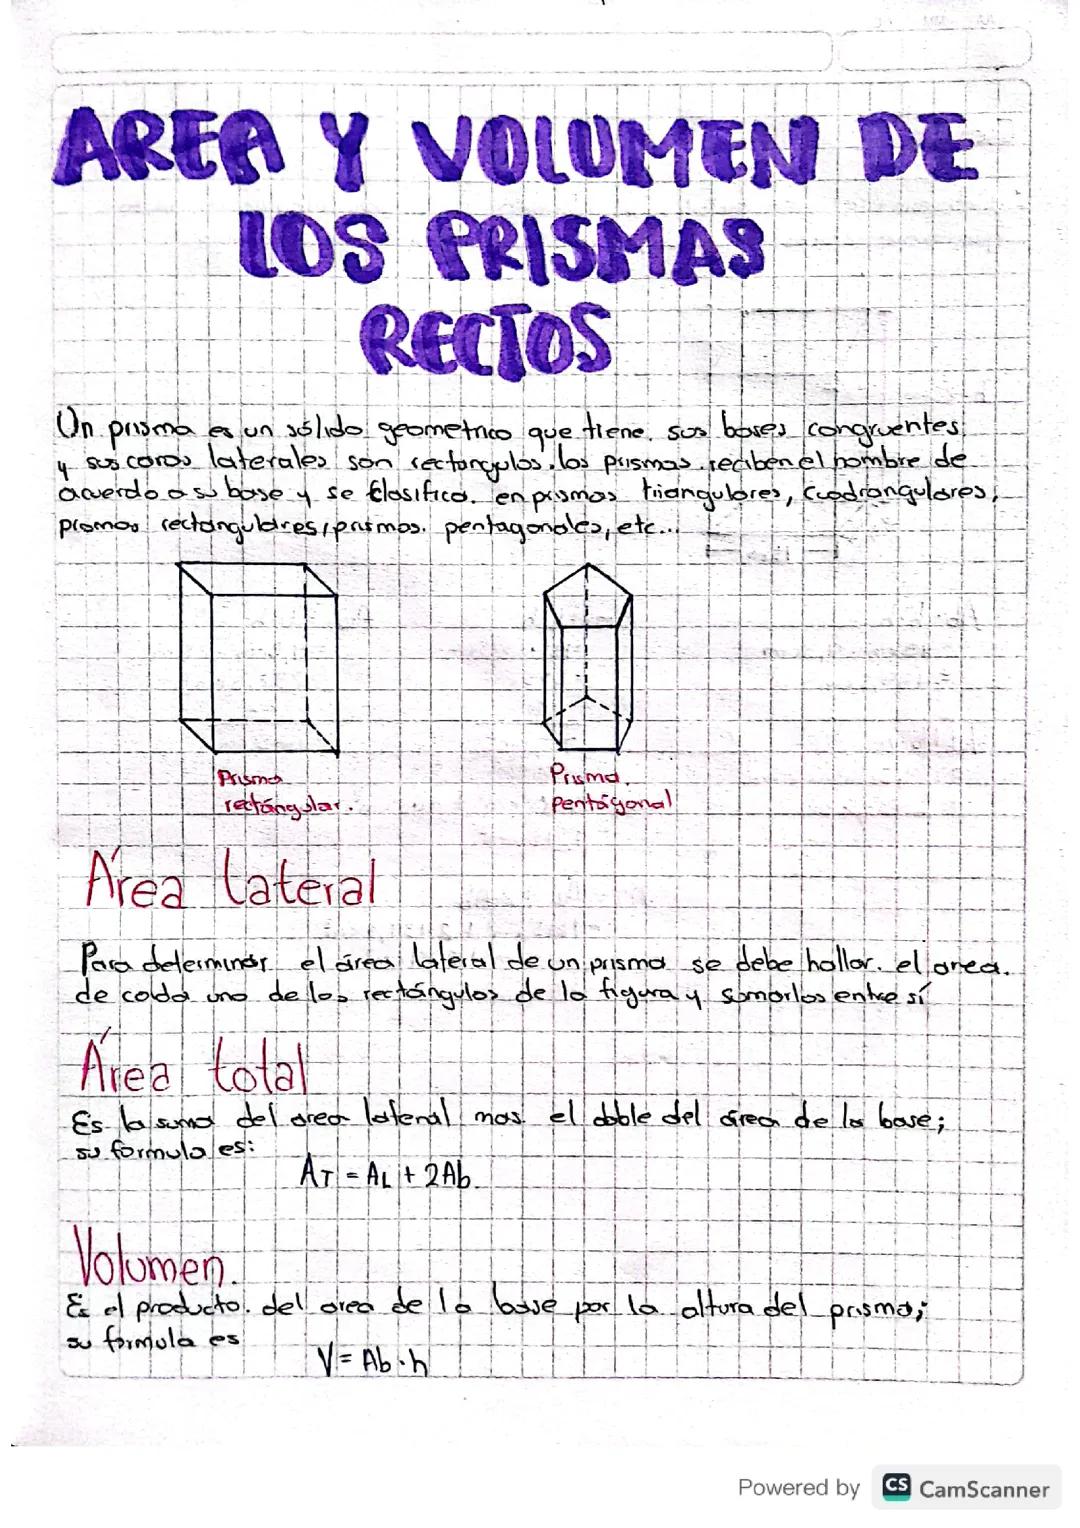 AREA Y VOLUMEN DE
LOS PRISMAS
RECTOS
Un prisma es un sólido geometrico que tiene sus bases congruentes
y sus caras laterales son rectangulos. los prismas reciben el nombre de
acuerdo a su base y se clasifica en prismas triangulares, cuadrangulares,
prismas rectangulares, prismas pentagonales, etc...
Prisma
rectángular.
Prisma
pentágonal
Área lateral
Para determinar el área lateral de un prisma se debe hallar el area
de cada uno de los rectángulos de la figura y sumarlos entre sí
Área total
Es la suma del area lateral mas el doble del área de la base;
su formula es:
AT = AL + 2Ab
Volumen
Es el producto del area de la base por la altura del prisma;
su formula es
V = Ab · h
Powered by CS CamScanner